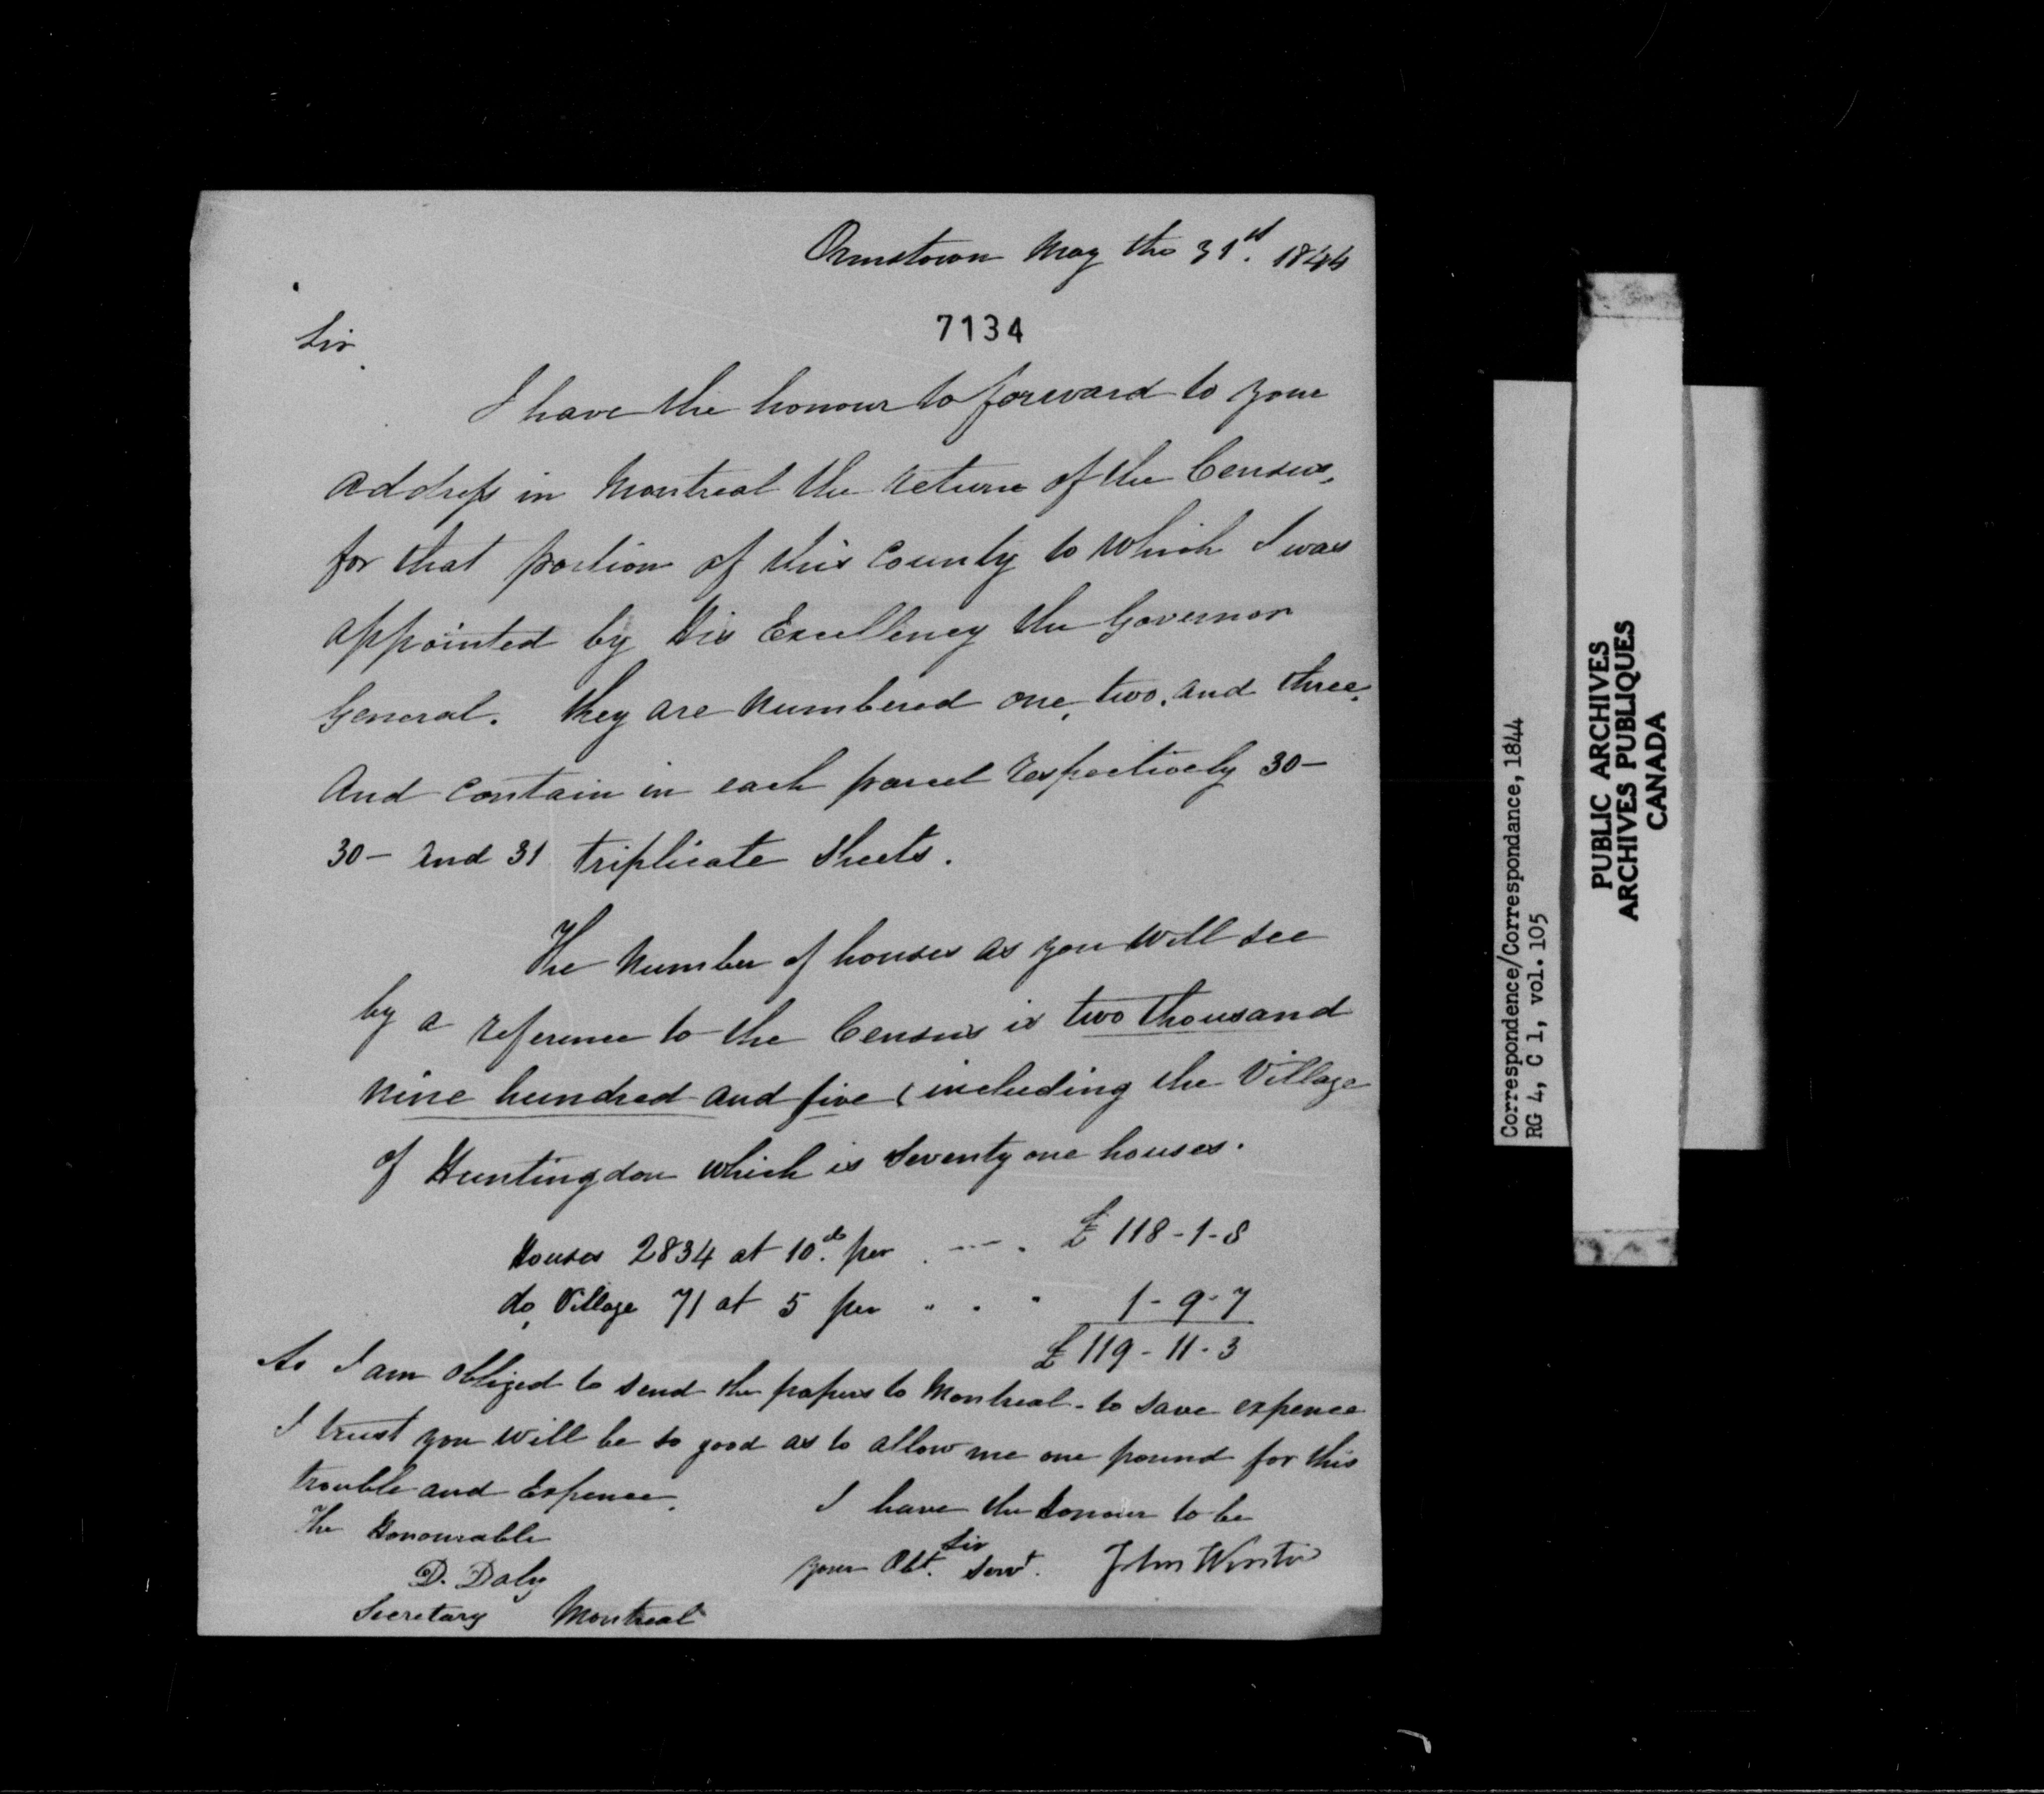 Ormstown May the 31st. 1844
7134
Sir
I have the honour to forward to your
address in Montreal the return of the Census,
for that portion of this County to which I was
appointed by His Excellency the Governor
General. they are numbered one, two, and three,
And contain in each parcel respectively 30-
30- and 31 triplicate sheets.
The number of houses as you will see
by a reference to the Census is two thousand
nine hundred and five (including the Village
of Huntingdon which is seventy one houses.
Houses 2834 at 10d. per . --- . £ 118-1-8
do, Village 71 at 5 per " . " 1-9-7
£ 119-11-3
As I am obliged to send the papers to Montreal - to save expence
I trust you will be so good as to allow me one pound for this
trouble and Expence.
I have the honour to be
Sir
your Obt. Servt. John
The Honourable
D. Daly
Secretary Montreal
Correspondence/Correspondance, 1844
RG 4, C 1, vol. 105
PUBLIC ARCHIVES
ARCHIVES PUBLIQUES
CANADA